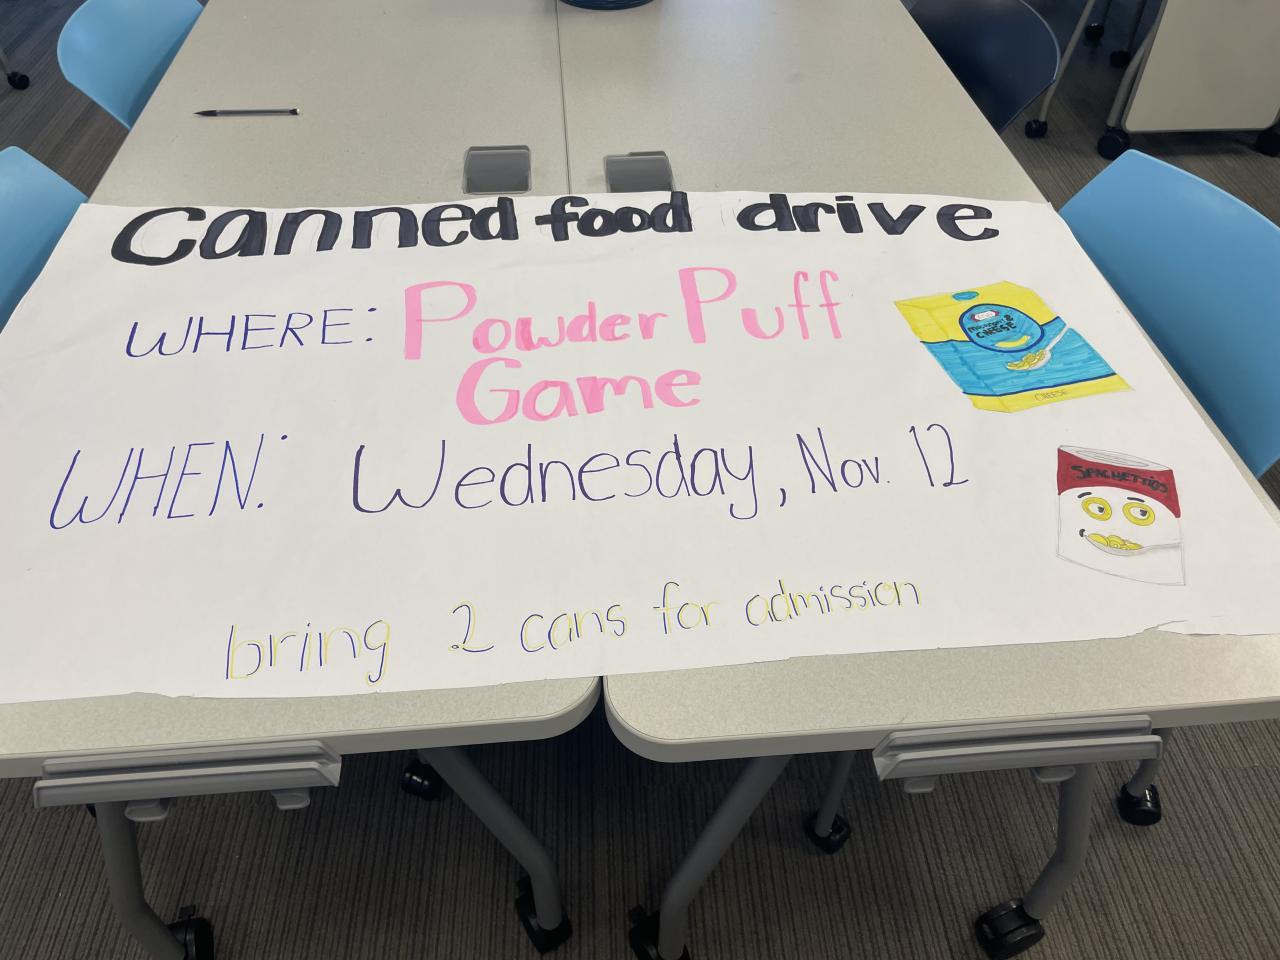 Canned food drive
WHERE: Powder Puff
Game
WHEN: Wednesday, Nov. 12
bring 2 cans for admission
CHEESE
CHEESE
SPAGHETTIOS